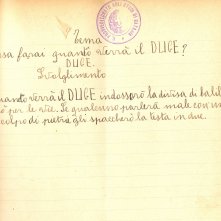 Tema
cosa farai quanto verrà il DUCE?
DUCE.
Svolgimento
quanto verrà il DUCE indosserò la divisa da balil
rò per le vie. Se qualcuno parlerà male con un
colpo di pietra gli spaccherò la testa in due.